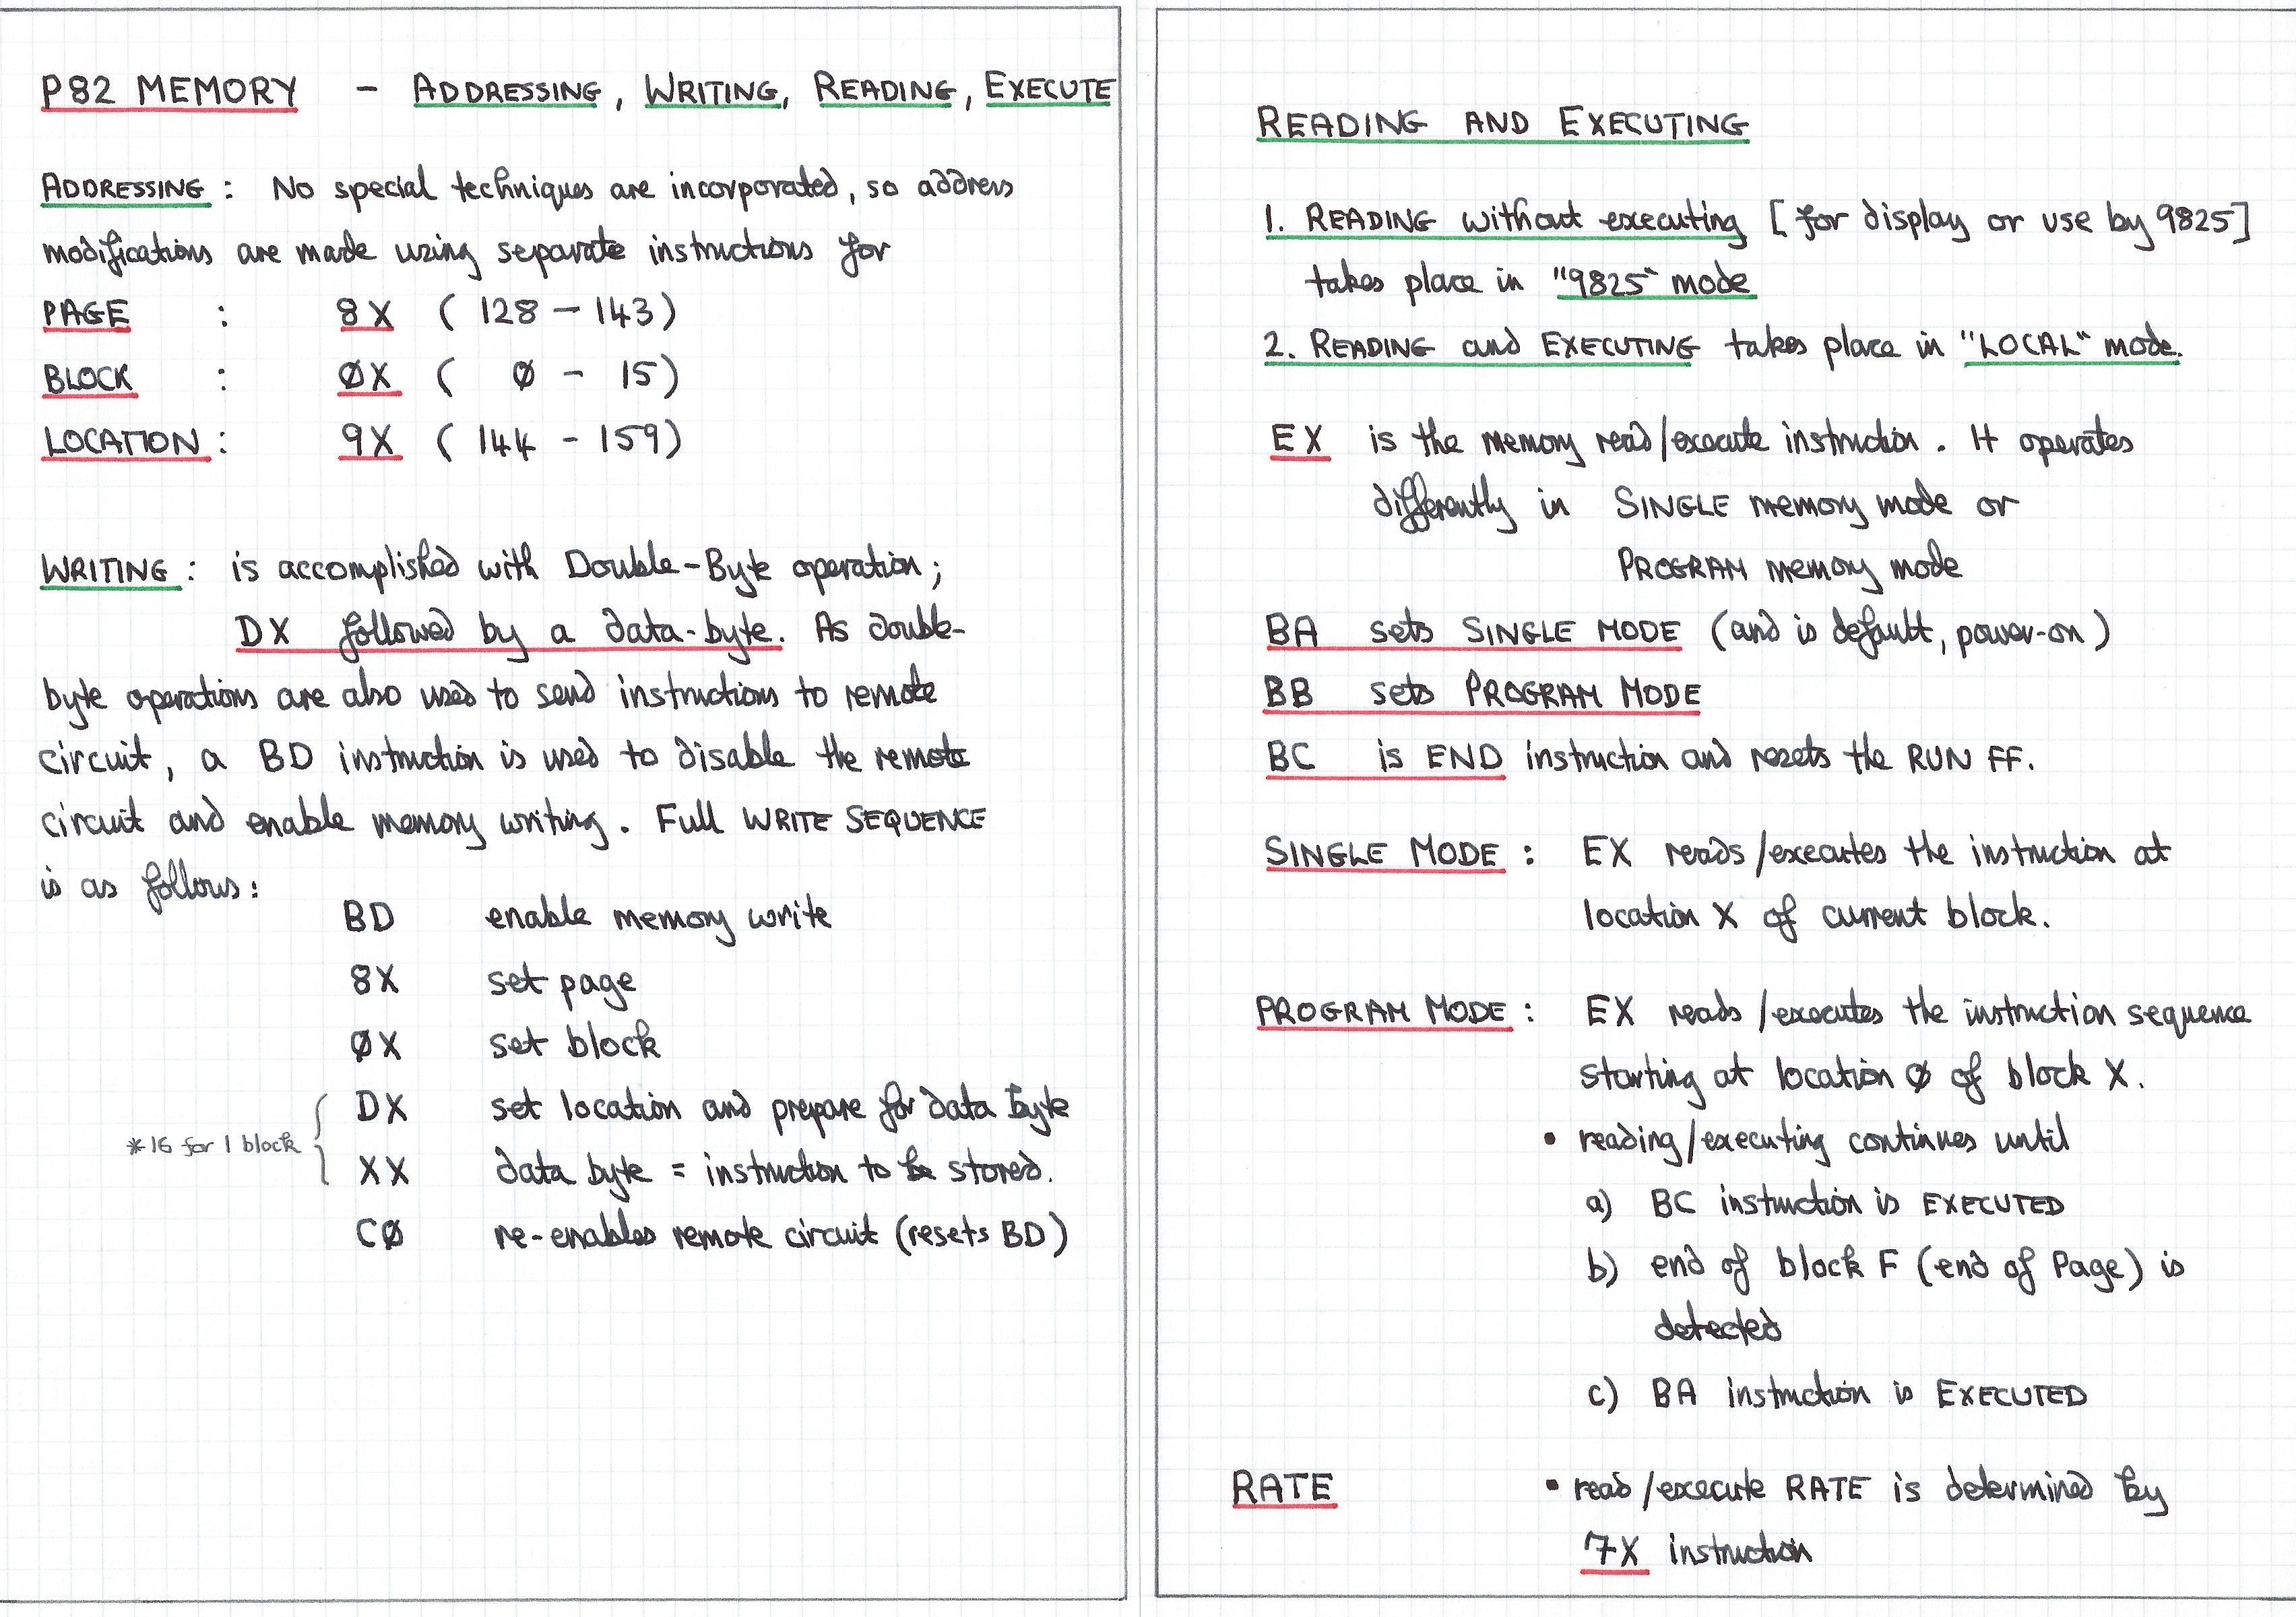 P82 MEMORY - ADDRESSING, WRITING, READING, EXECUTE
ADDRESSING: No special techniques are incorporated, so address
modifications are made using separate instructions for
PAGE : 8X (128 - 143)
BLOCK : ØX ( Ø - 15)
LOCATION: 9X (144 - 159)
WRITING: is accomplished with Double-Byte operation;
DX followed by a data-byte. As double-
byte operations are also used to send instructions to remote
circuit, a BD instruction is used to disable the remote
circuit and enable memory writing. Full WRITE SEQUENCE
is as follows:
BD enable memory write
8X set page
ØX set block
DX set location and prepare for data byte
*16 for 1 block
XX data byte = instruction to be stored.
CØ re-enables remote circuit (resets BD)
READING AND EXECUTING
1. READING without executing [for display or use by 9825]
takes place in "9825" mode
2. READING and EXECUTING takes place in "LOCAL" mode.
EX is the memory read/execute instruction. It operates
differently in SINGLE memory mode or
PROGRAM memory mode
BA sets SINGLE MODE (and is default, power-on)
BB sets PROGRAM MODE
BC is END instruction and resets the RUN FF.
SINGLE MODE: EX reads/executes the instruction at
location X of current block.
PROGRAM MODE: EX reads/executes the instruction sequence
starting at location Ø of block X.
• reading/executing continues until
a) BC instruction is EXECUTED
b) end of block F (end of Page) is
detected
c) BA instruction is EXECUTED
RATE • read/execute RATE is determined by
7X instruction